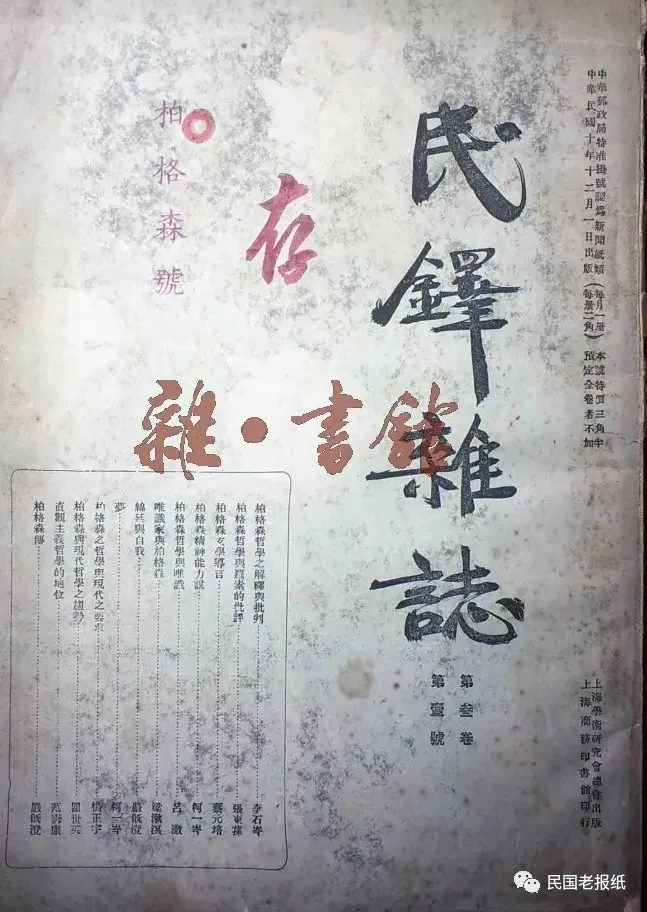 中華郵政局特准掛號認爲新聞紙類（每月一册 本號特價三角半
中華民國十年十二月一日出版（每册二角） 預定全卷者不加
民鐸雜誌
第叁卷
第壹號
上海學術研究會總會出版
上海商務印書館印行
存
柏格森號
雜·書館
柏格森哲學之解釋與批判 李石岑
柏格森哲學與羅素的批評 張東蓀
柏格森玄學導言 蔡元培
柏格森精神能力說 柯一岑
柏格森哲學與唯識 呂澂
唯識家與柏格森 梁漱溟
綿延與自我 嚴旣澄
夢 柯一岑
柏格森之哲學與現代之要求 楊正宇
柏格森與現代哲學之趨勢 瞿世英
直觀主義哲學的地位 范壽康
柏格森傳 嚴旣澄
民国老报纸